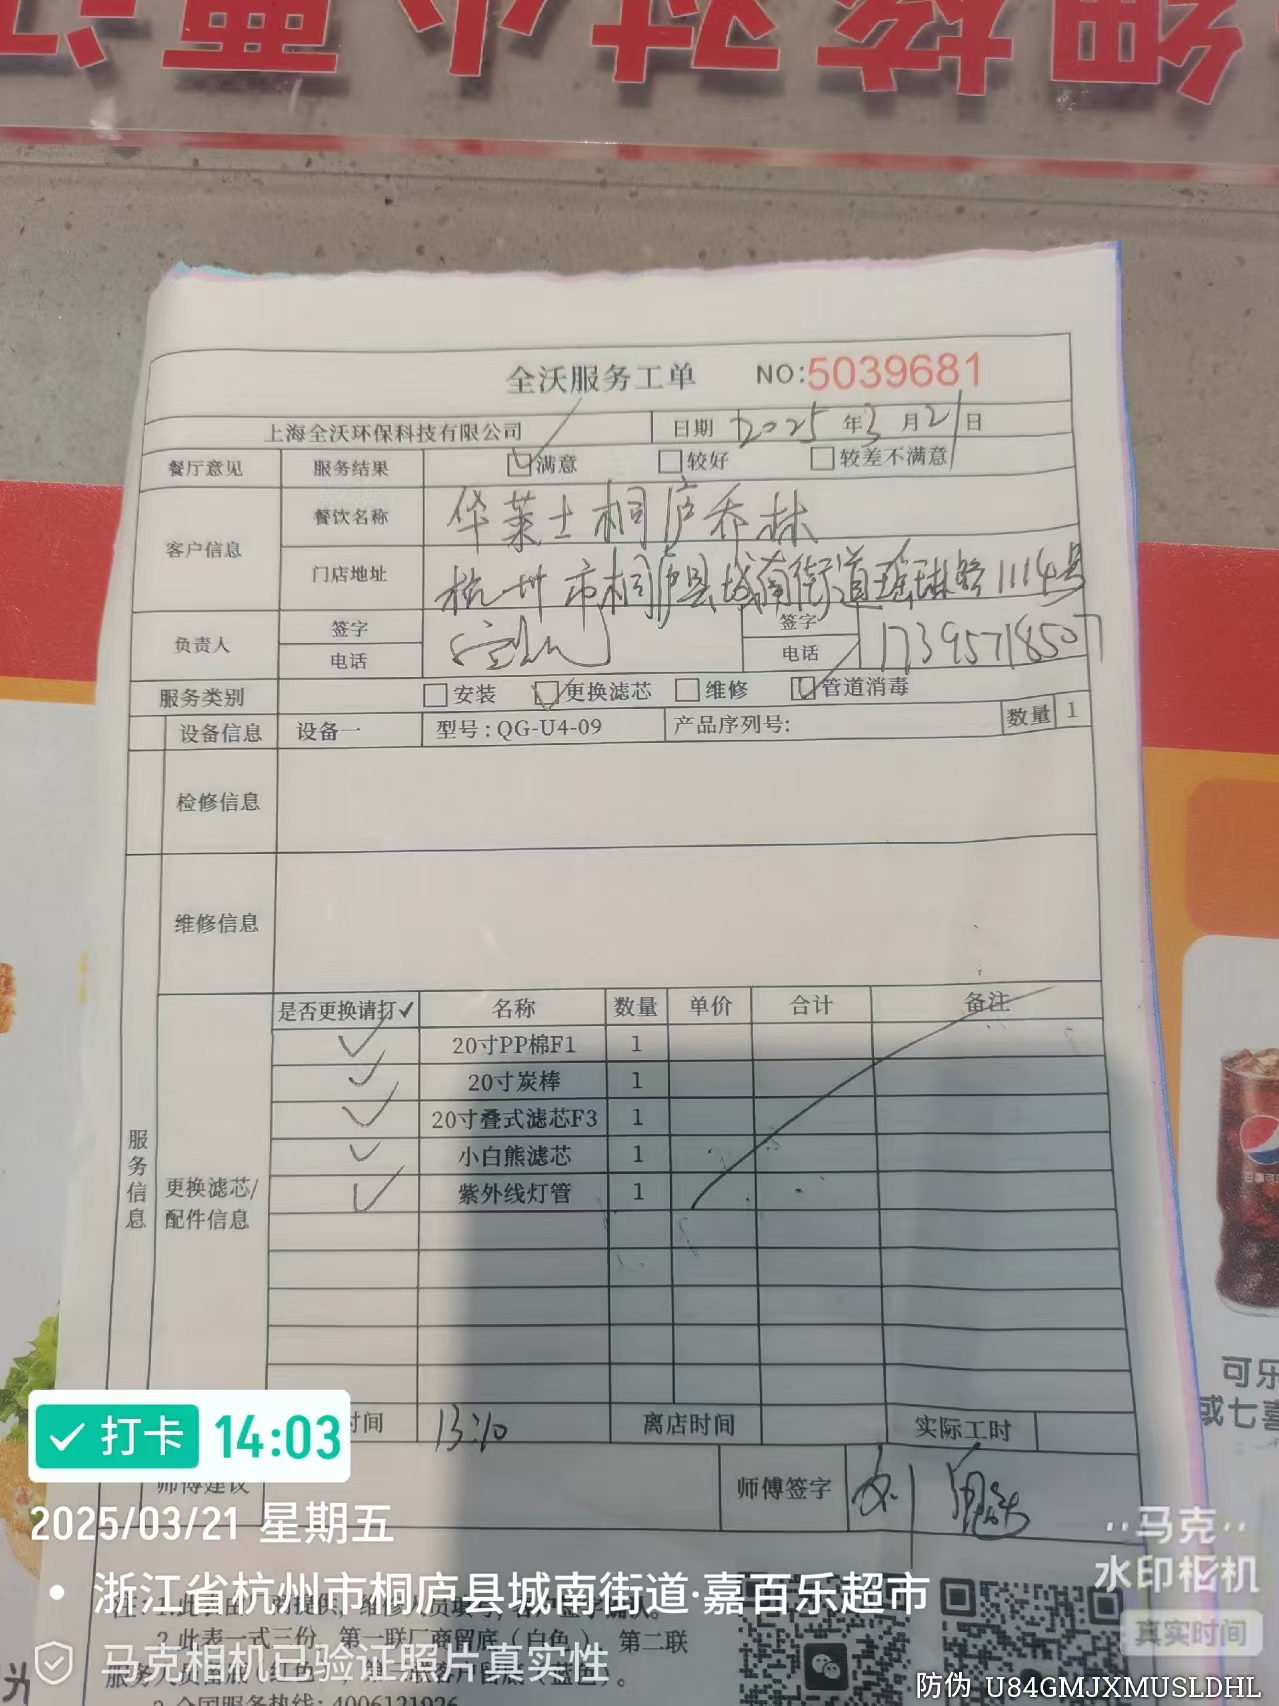 全沃服务工单 NO:5039681
上海全沃环保科技有限公司 日期 2025年3月21日
餐厅意见 服务结果 满意 较好 较差不满意
客户信息 餐饮名称 华莱士桐庐乔林
门店地址 杭州市桐庐县城南街道瑶琳路1114号
负责人 签字 签字
电话 电话 17395718507
服务类别 安装 更换滤芯 维修 管道消毒
设备信息 设备一 型号:QG-U4-09 产品序列号: 数量 1
检修信息
维修信息
服务信息
更换滤芯/配件信息
是否更换请打✓ 名称 数量 单价 合计 备注
✓ 20寸PP棉F1 1
✓ 20寸炭棒 1
✓ 20寸叠式滤芯F3 1
✓ 小白熊滤芯 1
✓ 紫外线灯管 1
时间 13:10 离店时间 实际工时
师傅建议 师傅签字
第二联
全国服务热线: 4006121926
可乐
或七喜
打卡 14:03
2025/03/21 星期五
浙江省杭州市桐庐县城南街道·嘉百乐超市
马克相机已验证照片真实性
马克
水印相机
真实时间
防伪 U84GMJXMUSLDHL